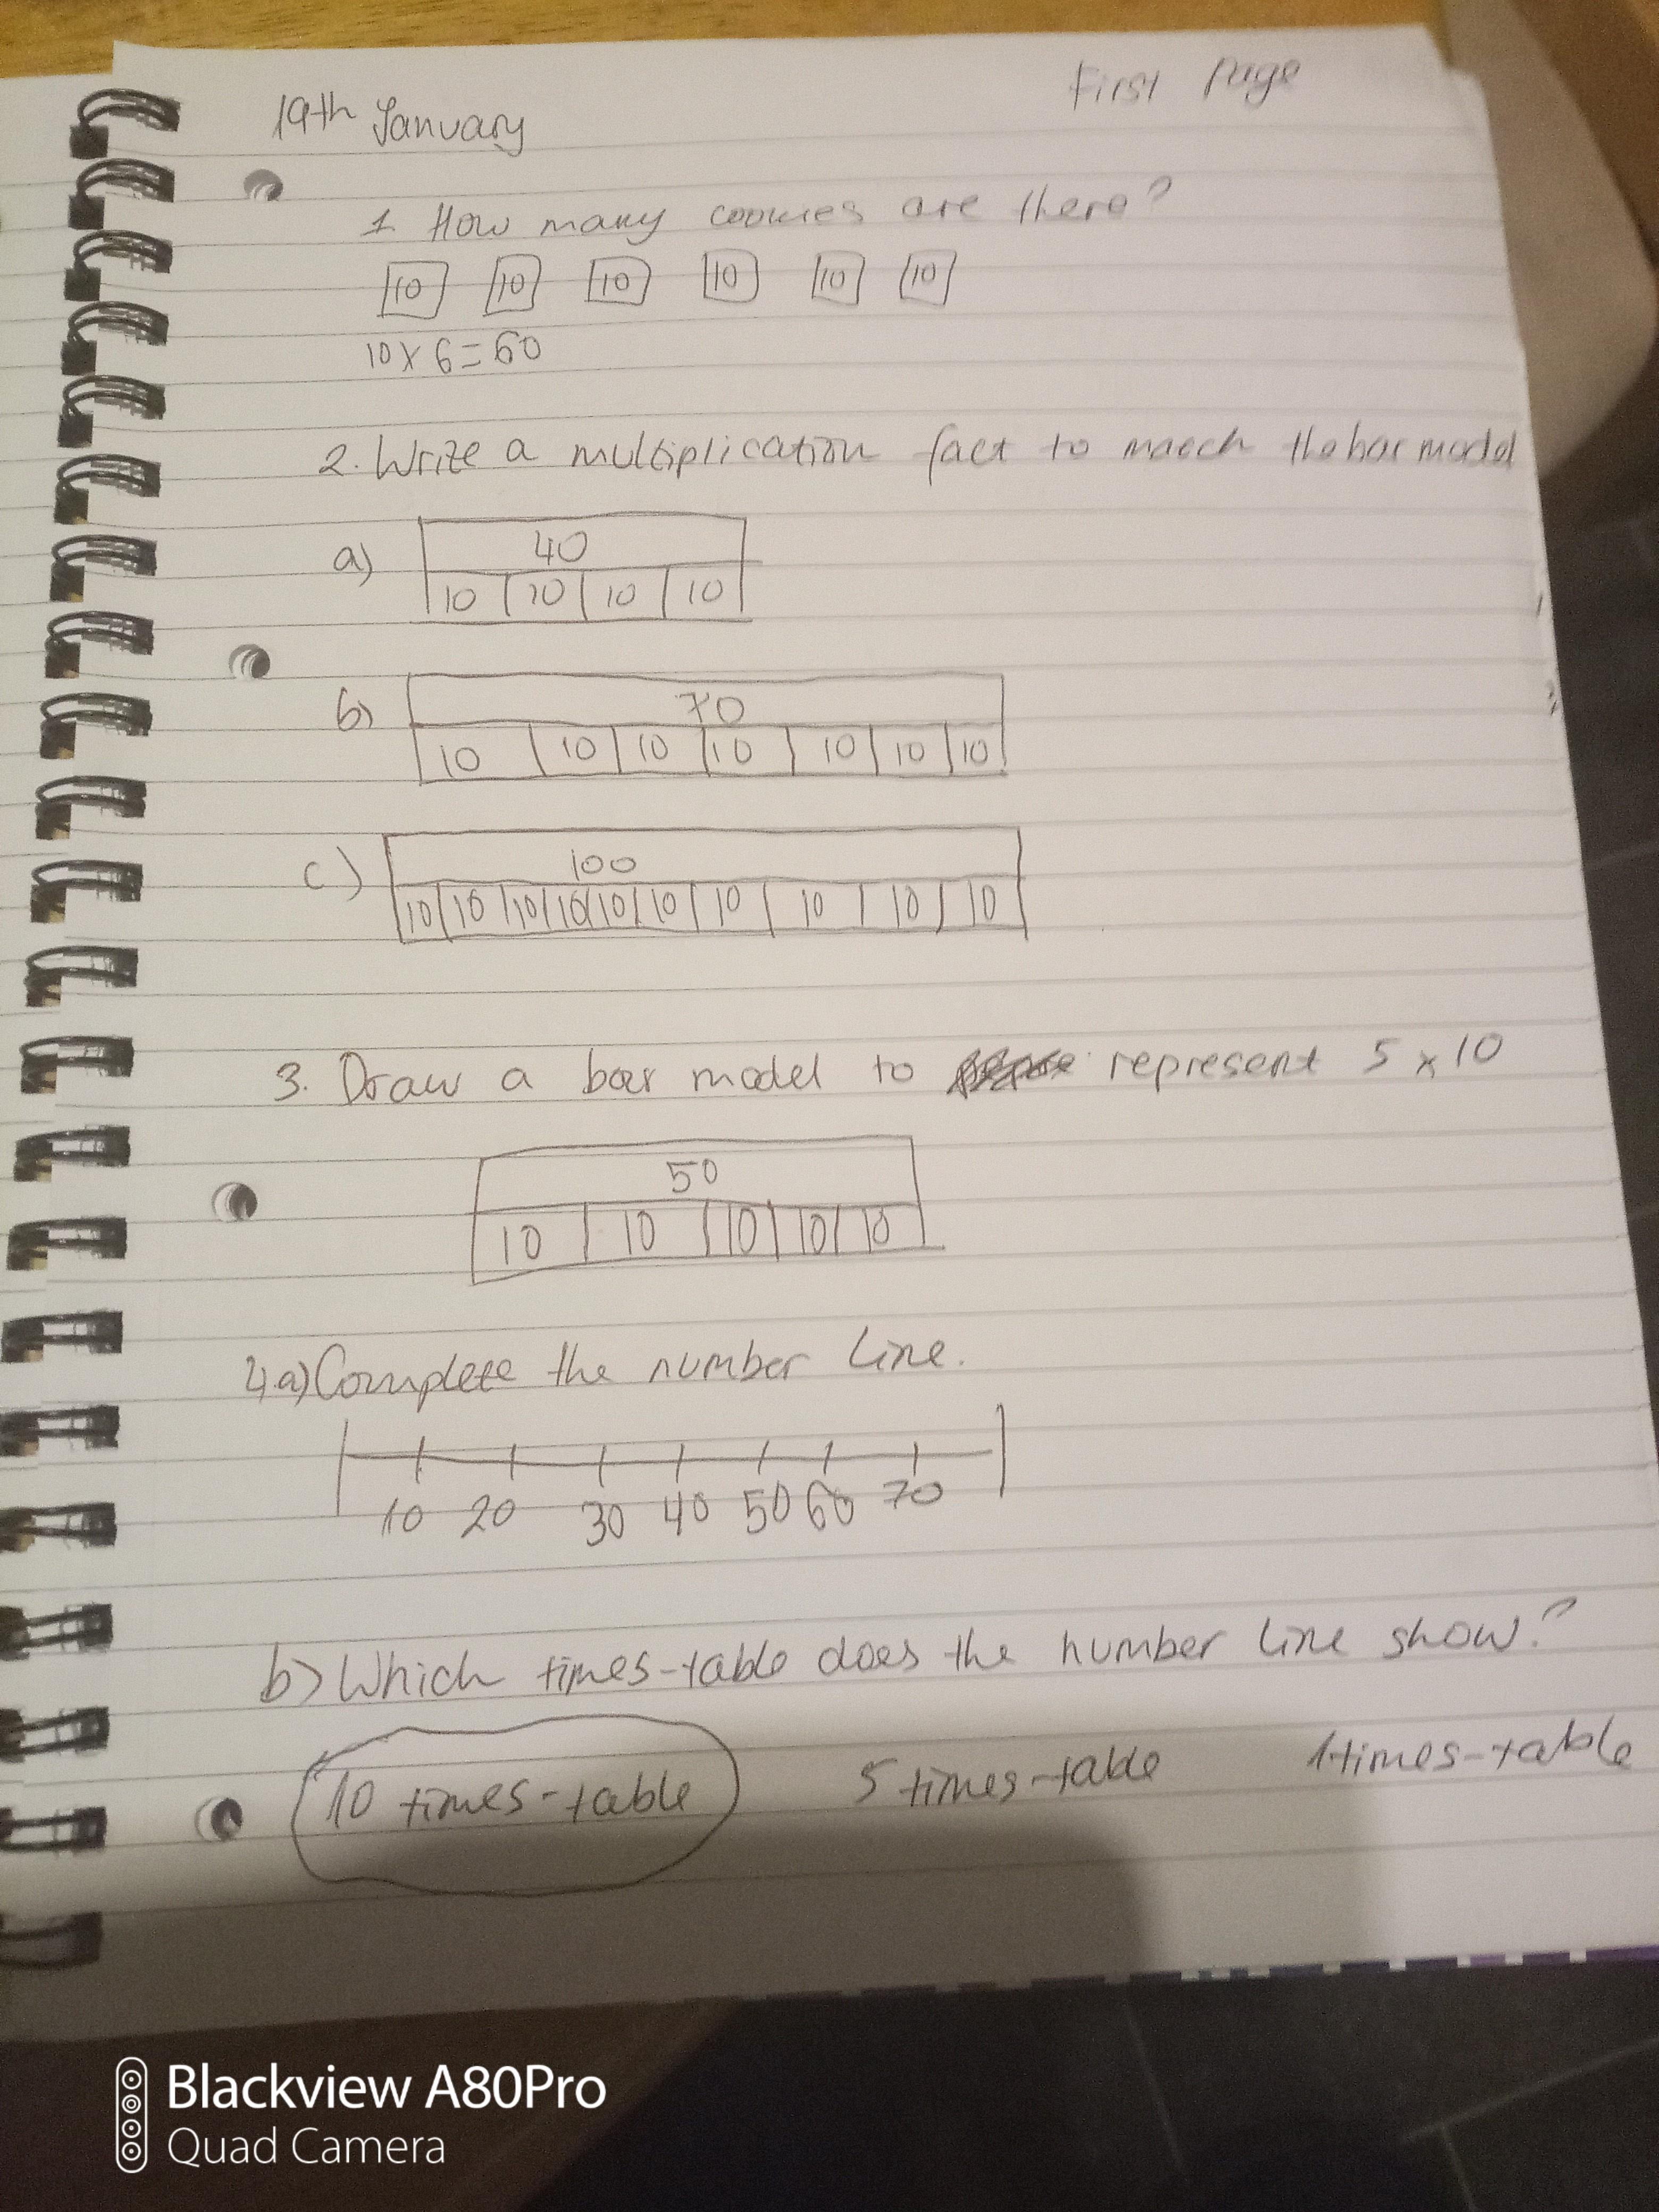 First Page
19th January
1. How many cookies are there?
10 10 10 10 10 10
10 x 6 = 60
2. Write a multiplication fact to match the bar model
a) 40
10 10 10 10
b) 70
10 10 10 10 10 10 10
c) 100
10 10 10 10 10 10 10 10 10 10
3. Draw a bar model to represent 5 x 10
50
10 10 10 10 10
4.a) Complete the number line.
10 20 30 40 50 60 70
b) Which times-table does the number line show?
10 times-table 5 times-table 1 times-table
Blackview A80Pro
Quad Camera